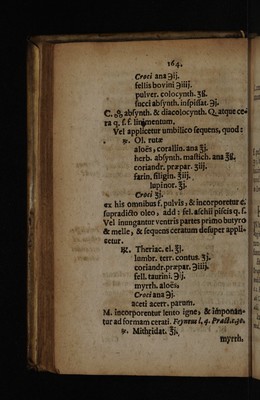 164.
Croci ana ℈ij.
fellis bovini ℈iiij.
pulver. colocynth. ʒß.
succi absynth. inspissat. ℈j.
C. absynth. & diacolocynth. Q. atque ce-
ra q. s. f. linimentum.
Vel applicetur umbilico sequens, quod:
℞. Ol. rutæ
aloës, corallin. ana ʒj.
herb. absynth. mastich. ana ʒß.
coriandr. præpar. ʒiij.
farin. siligin. ℥iij.
lupinor. ℥j.
Croci ʒj.
ex his omnibus f. pulvis, & incorporetur c.
supradicto oleo, add: fel. aschii piscis q. s.
Vel inungantur ventris partes primo butyro
& melle, & sequens ceratum desuper appli-
cetur.
℞. Theriac. el. ℥j.
lumbr. terr. contus. ℥j.
coriandr. præpar. ℈iiij.
fell. taurini. ℈ij.
myrrh. aloës.
Croci ana ℈j.
aceti acerr. parum.
M. incorporentur lento igne, & imponan-
tur ad formam cerati. Feyneus l. 4. Pract. c. 40.
℞. Mithridat. ℥j.
myrrh.